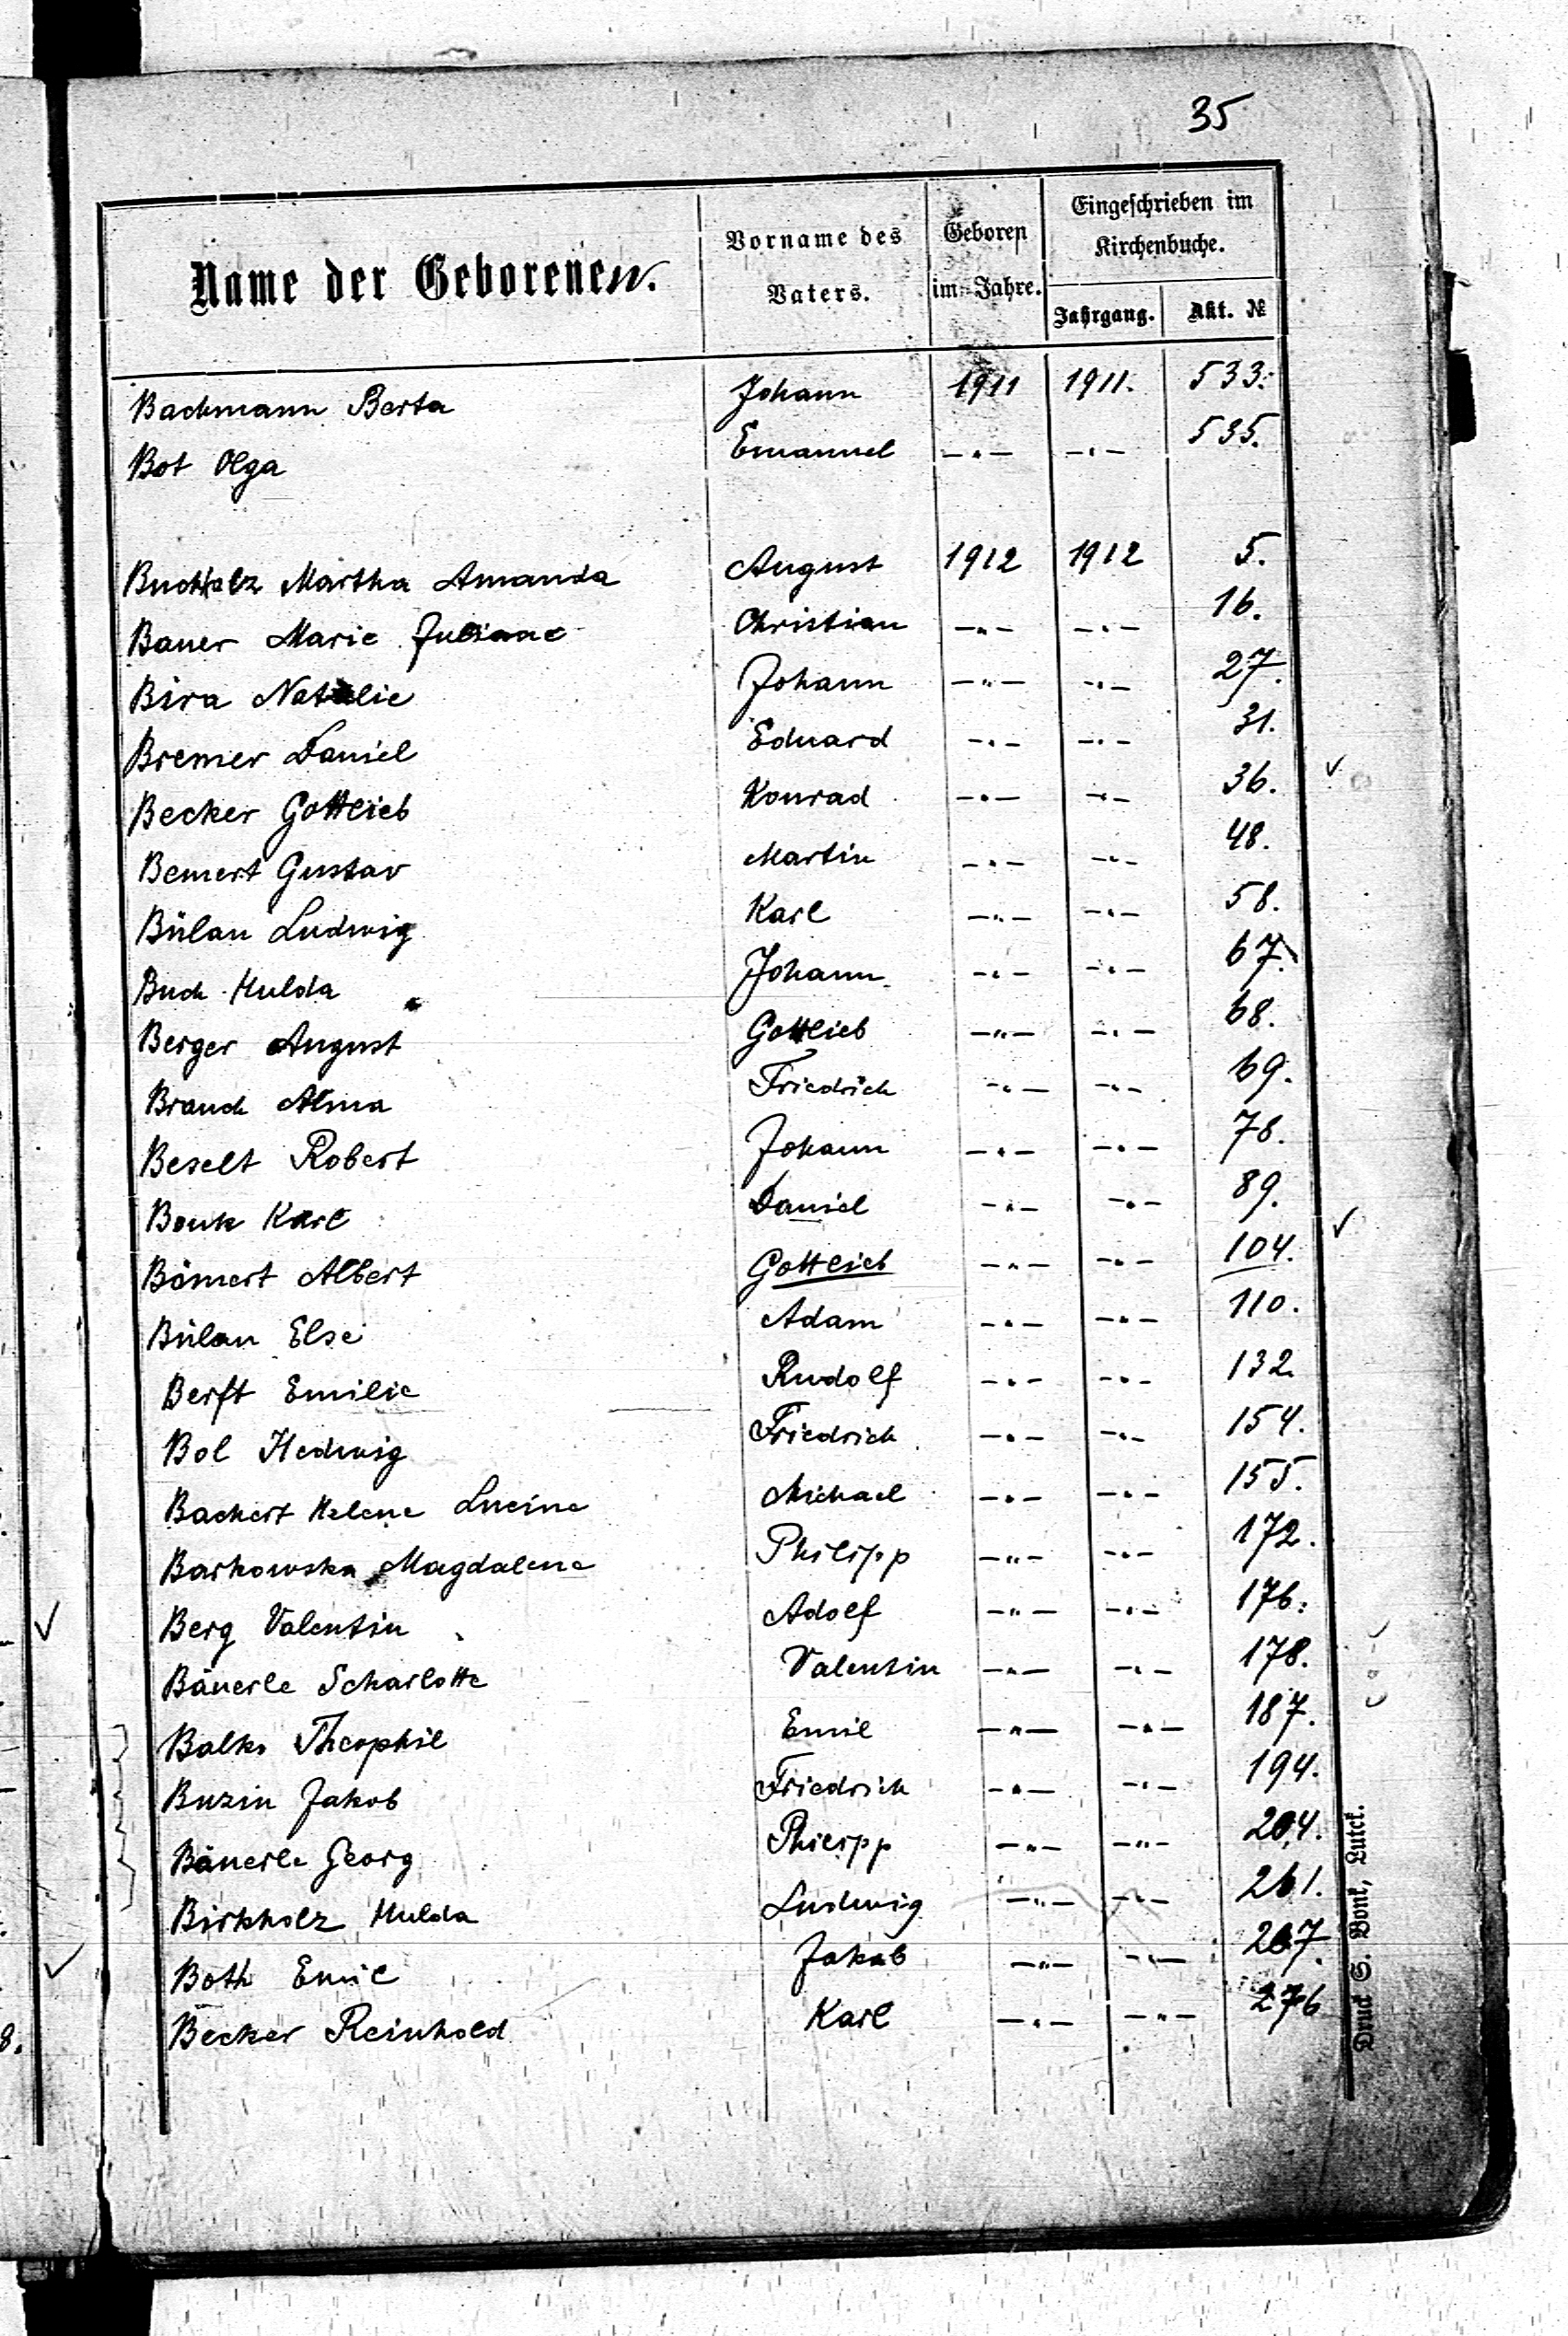 35
Name der Geborenen. Vorname des Vaters. Geboren im Jahre. Eingeschrieben im Kirchenbuche. Jahrgang. Akt. №
Bachmann Berta Johann 1911 1911. 533.
Bot Olga Emanuel -"- -"- 535.
Buchholz Martha Amanda August 1912 1912 5.
Bauer Marie Juliane Christian -"- -"- 16.
Bira Natalie Johann -"- -"- 27.
Bremer Daniel Eduard -"- -"- 31.
Becker Gottlieb Konrad -"- -"- 36. ✓
Bemert Gustav Martin -"- -"- 48.
Bülau Ludwig Karl -"- -"- 58.
Buch Hulda Johann -"- -"- 67.
Berger August Gottlieb -"- -"- 68.
Brauch Alma Friedrich -"- -"- 69.
Beselt Robert Johann -"- -"- 78.
Bonk Karl Daniel -"- -"- 89.
Bömert Albert Gottlieb -"- -"- 104. ✓
Bülau Else Adam -"- -"- 110.
Berft Emilie Rudolf -"- -"- 132.
Bol Hedwig Friedrich -"- -"- 154.
Bachert Helene Lucine Michael -"- -"- 155.
Barkowska Magdalene Philipp -"- -"- 172.
✓ Berg Valentin Adolf -"- -"- 176.
Bäuerle Scharlotte Valentin -"- -"- 178.
Balko Theophil Emil -"- -"- 187.
Buzin Jakob Friedrich -"- -"- 194.
Bäuerle Georg Philipp -"- -"- 204.
Birkholz Hulda Ludwig -"- -"- 261.
✓ Both Emil Jakob -"- -"- 267.
Becker Reinhold Karl -"- -"- 276
8.
Druck S. Bonk, Lutck.